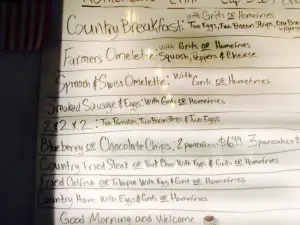 with Grits or Homefries
Country Breakfast: Two Eggs, Two Bacon Strips, One
with Grits or Homefries
Farmers Omelette: Squash, Peppers & Cheese
Spinach & Swiss Omelette: with Grits or Homefries
Smoked Sausage & Eggs: With Grits or Homefries
2x2x2: Two Pancakes, Two Bacon Strips & Two Eggs
Blueberry or Chocolate Chips; 2 pancakes $6.99 3 pancakes
Country Fried Steak or Pork Chop With Eggs & Grits or Homefries
Fried Catfish or Tilapia With Egg & Grit or Homefries
Country Ham With Eggs & Grits or Homefries
Good Morning and Welcome